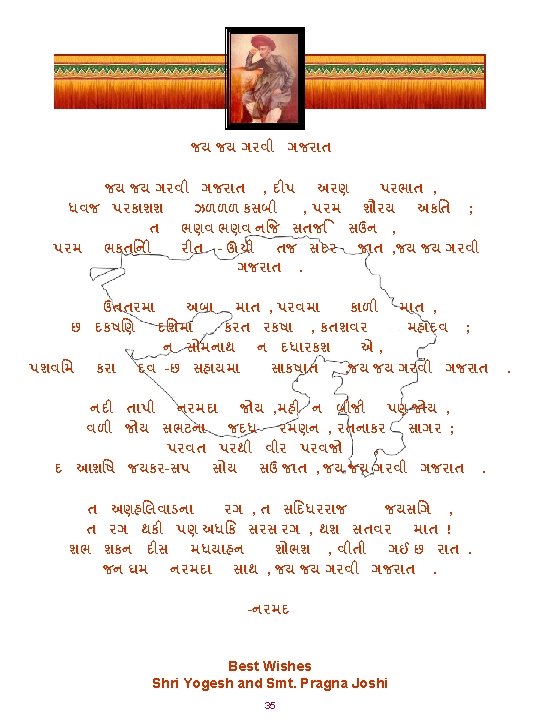 જય જય ગરવી ગજરાત
જય જય ગરવી ગજરાત , દીપ અરણ પરભાત ,
ધવજ પરકાશશ ઝળળળ કસબી , પરમ શૌરય અકતિ ;
ત ભણવ ભણવ નજિ સતજિ સઉન ,
પરમ ભકતનિી રીત - ઊચી તજ સદર જાત ,જય જય ગરવી
ગજરાત .
ઉતતરમા અબા માત , પરવમા કાળી માત ,
છ દકષણિ દશિમા કરત રકષા , કતશવર મહાદવ ;
ન સોમનાથ ન દધારકશ એ ,
પશવમિ કરા દવ -છ સહાયમા સાકષાત જય જય ગરવી ગજરાત .
નદી તાપી નરમદા જોય ,મહી ન બીજી પણ જોય ,
વળી જોય સભટના જદધ રમણન , રતનાકર સાગર ;
પરવત પરથી વીર પરવજો
દ આશષિ જયકર-સપ સોય સઉ જાત , જય જય ગરવી ગજરાત .
ત અણહલિવાડના રગ , ત સદિધરરાજ જયસગિ ,
ત રગ થકી પણ અધકિ સરસ રગ , થશ સતવર માત !
શભ શકન દીસ મધયાહન શોભશ , વીતી ગઈ છ રાત .
જન ઘમ નરમદા સાથ , જય જય ગરવી ગજરાત .
-નરમદ
Best Wishes
Shri Yogesh and Smt. Pragna Joshi
35